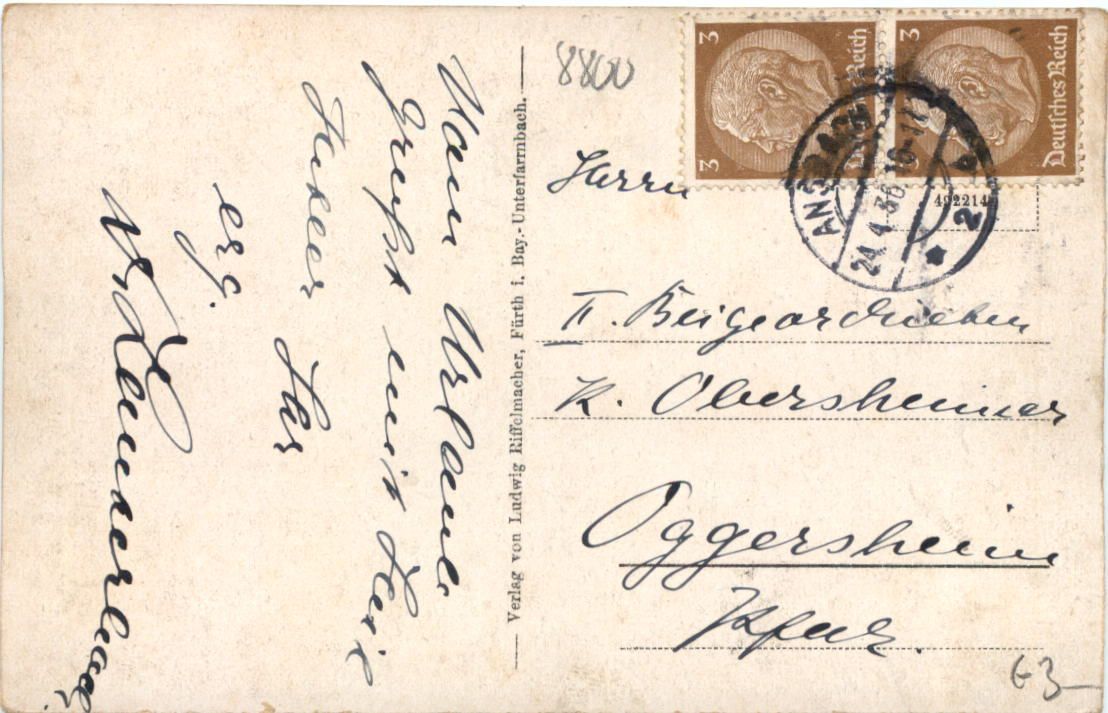 Vom Urlaub
grüßt mit Heil
Hitler
erg.
Verlag von Ludwig Riffelmacher, Fürth i. Bay.-Unterfarrnbach.
8800
3
3
Deutsches Reich
3
Deutsches Reich
ANSBACH 2
24.4.36.10-11
492214
Herrn
II. Beigeordneten
K. Obersheimer
Oggersheim
Pfalz.
63-